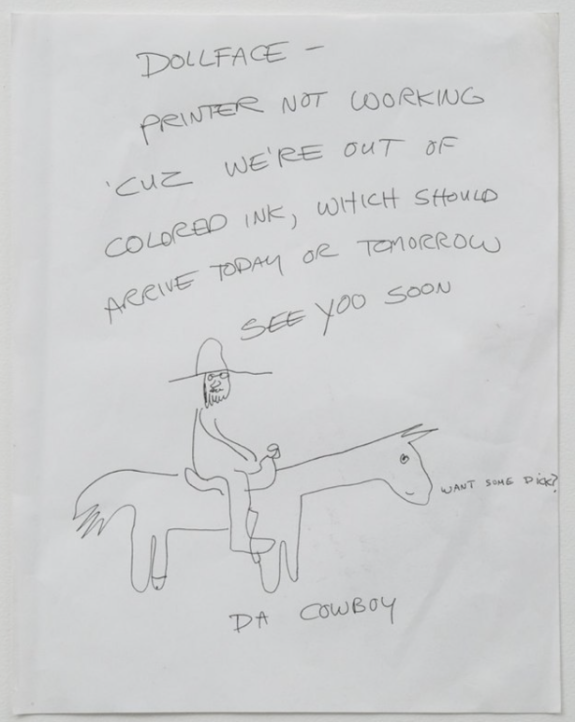 DOLLFACE –
PRINTER NOT WORKING
'CUZ WE'RE OUT OF
COLORED INK, WHICH SHOULD
ARRIVE TODAY OR TOMORROW
SEE YOO SOON
WANT SOME DICK?
DA COWBOY